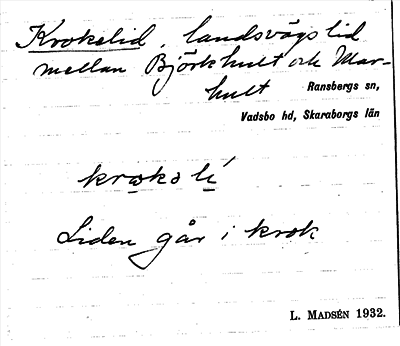 Krokslid, landsvägslid
mellan Björkhult och Mar-
hult
Ransbergs sn,
Vadsbo hd, Skaraborgs län
krøks lí
Liden går i krok
L. MADSÉN 1932.